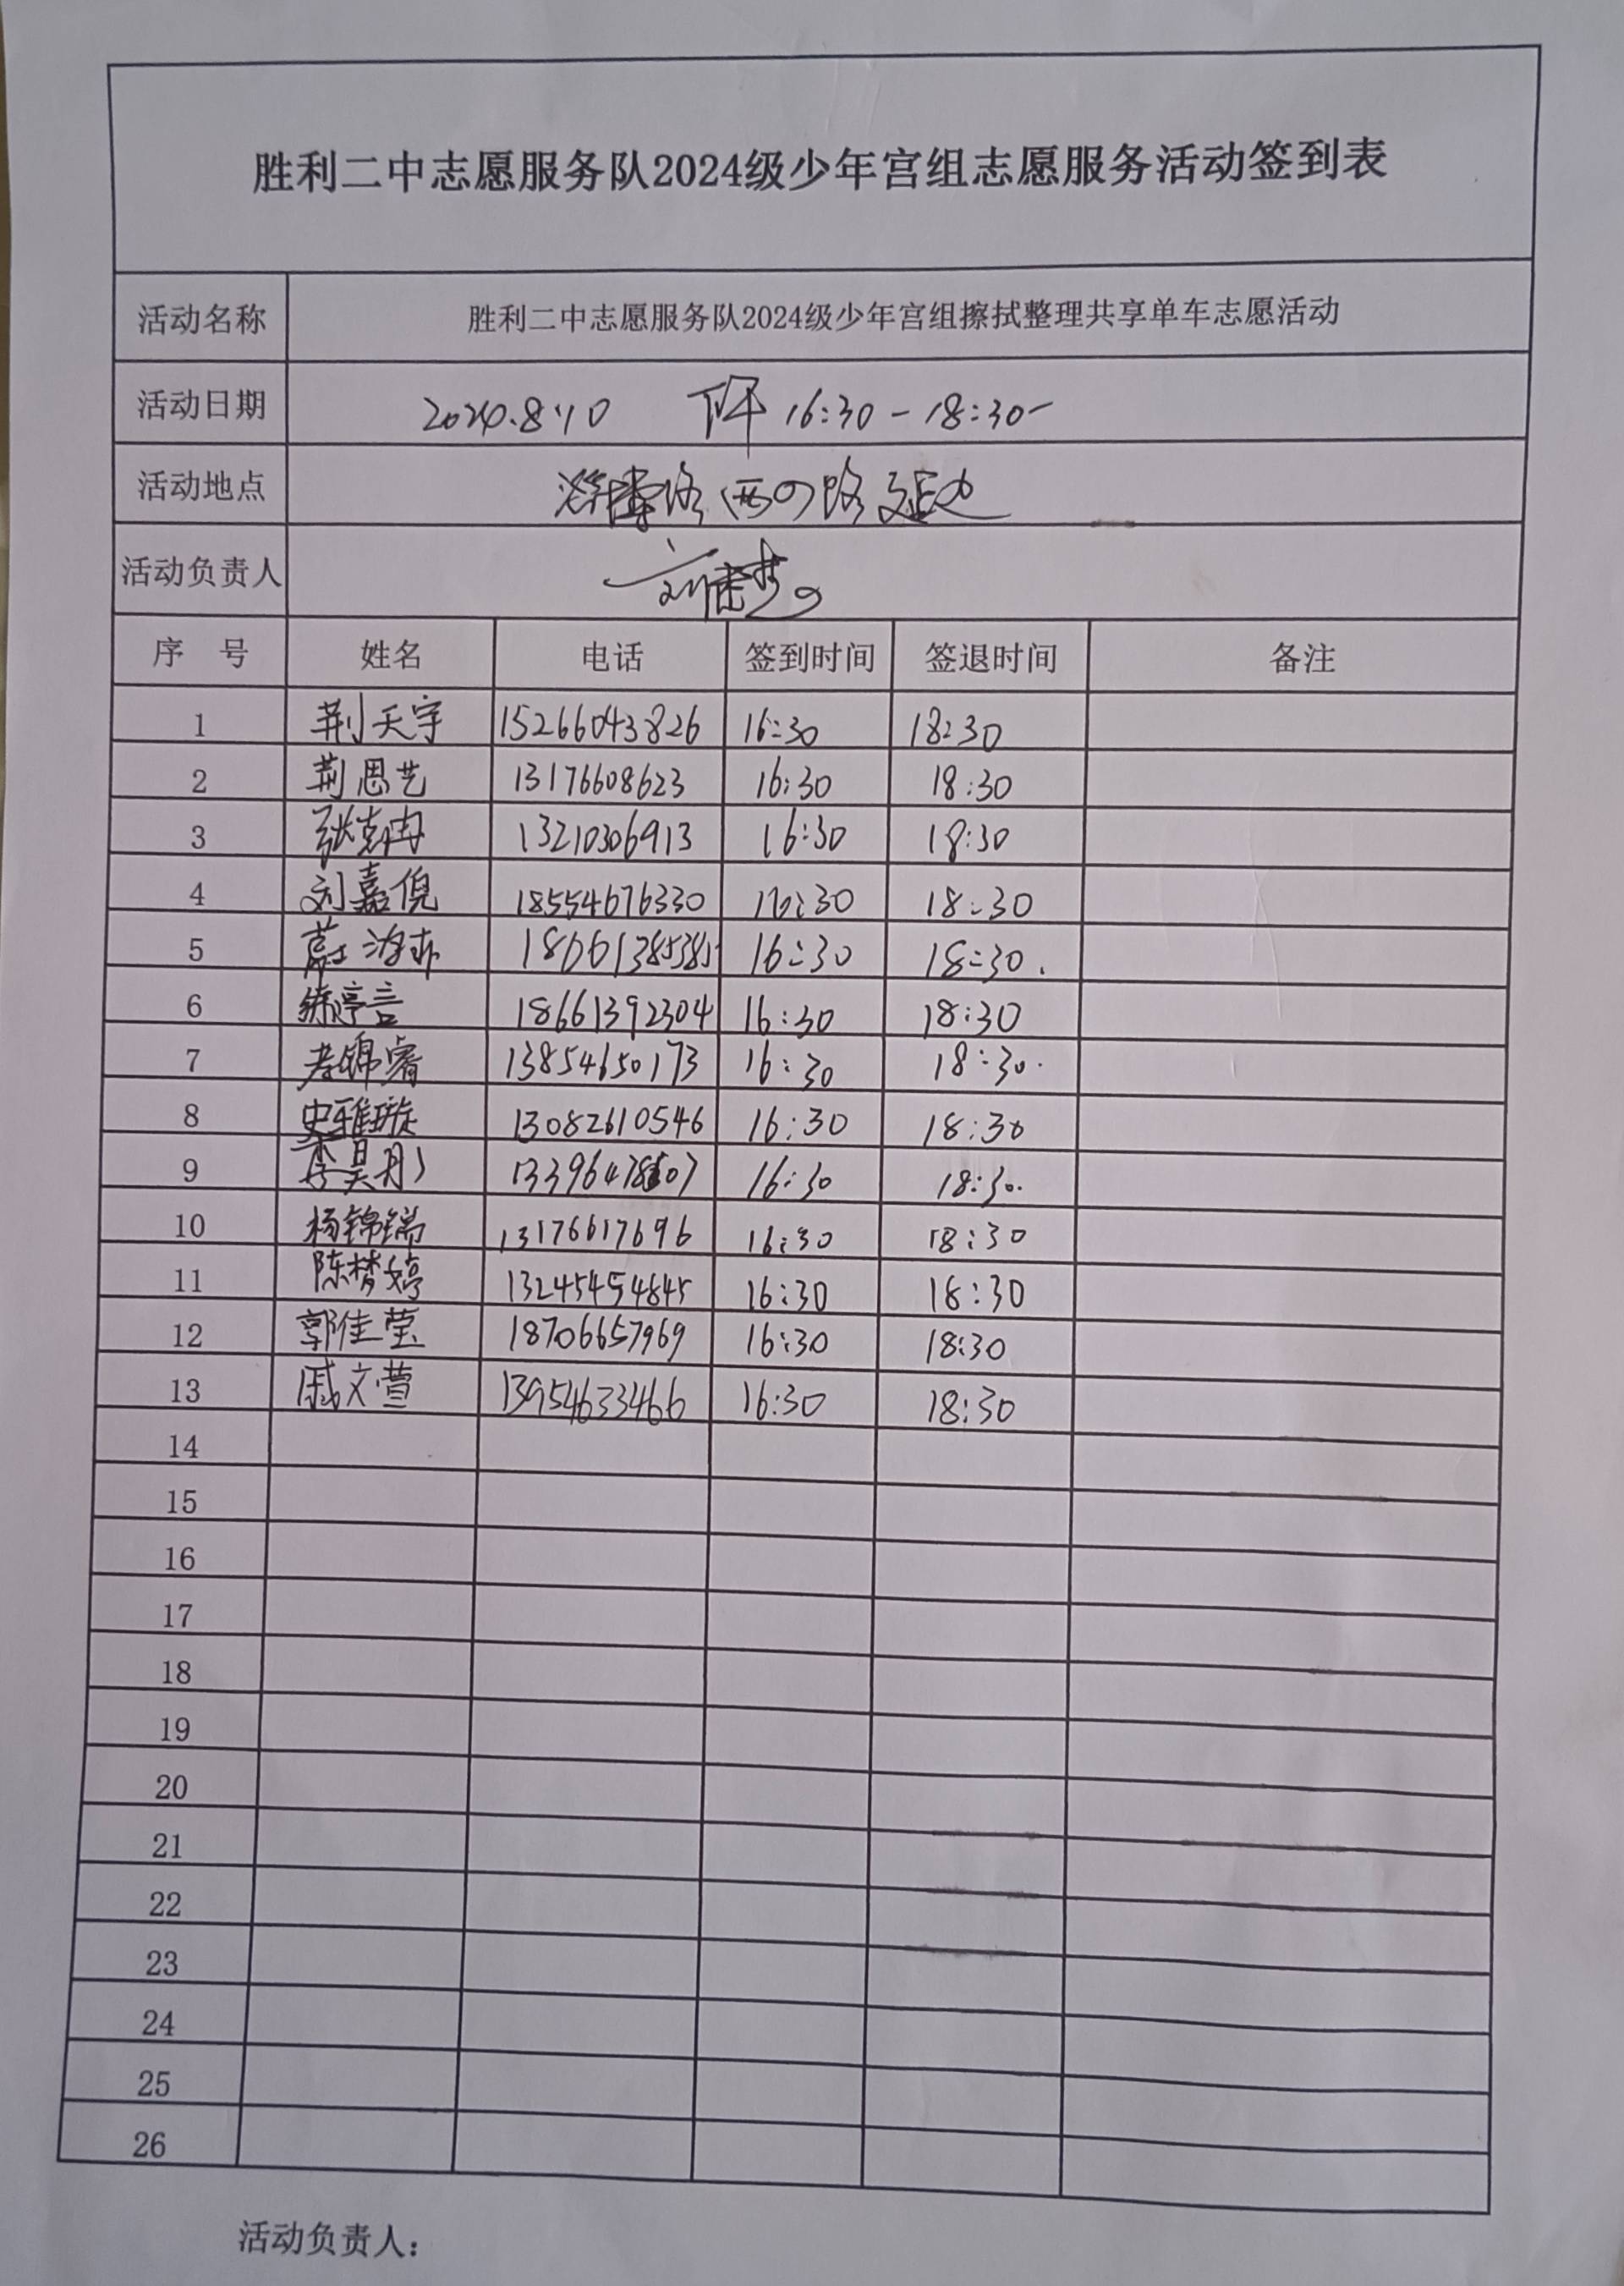 胜利二中志愿服务队2024级少年宫组志愿服务活动签到表
活动名称 胜利二中志愿服务队2024级少年宫组擦拭整理共享单车志愿活动
活动日期 2024.8.10 下午 16:30-18:30
活动地点 西四路
活动负责人
序 号 姓名 电话 签到时间 签退时间 备注
1 荆天宇 15266043826 16:30 18:30
2 荆思艺 13176608623 16:30 18:30
3 13210306913 16:30 18:30
4 刘嘉倪 18554676330 16:30 18:30
5 18661385385 16:30 18:30.
6 18661392304 16:30 18:30
7 李锦睿 13854650173 16:30 18:30.
8 史雅璇 13082610546 16:30 18:30
9 李昊彤 16:30 18:30.
10 杨锦瑞 13176617696 16:30 18:30
11 陈梦婷 13245454845 16:30 18:30
12 郭佳莹 18706657969 16:30 18:30
13 戚文萱 13954633466 16:30 18:30
14
15
16
17
18
19
20
21
22
23
24
25
26
活动负责人：